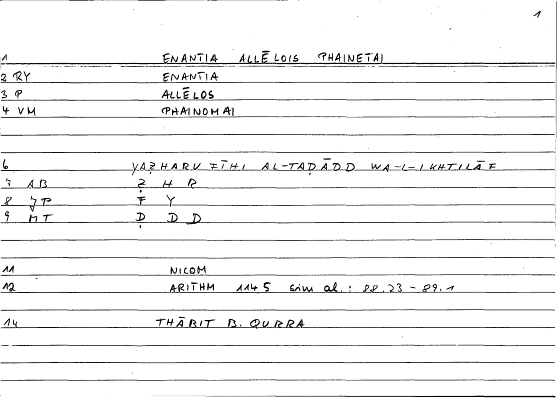 1
1 ENANTIA ALLĒLOIS PHAINETAI
2 RY ENANTIA
3 P ALLĒLOS
4 VM PHAINOMAI
6 YAẒHARU FĪHI AL-TAḌĀDD WA-L-IKHTILĀF
7 AB Ẓ H R
8 JP F Y
9 MT Ḍ D D
11 NICOM
12 ARITHM 114 5 sim al.: 88.23 - 89.1
14 THĀBIT B. QURRA